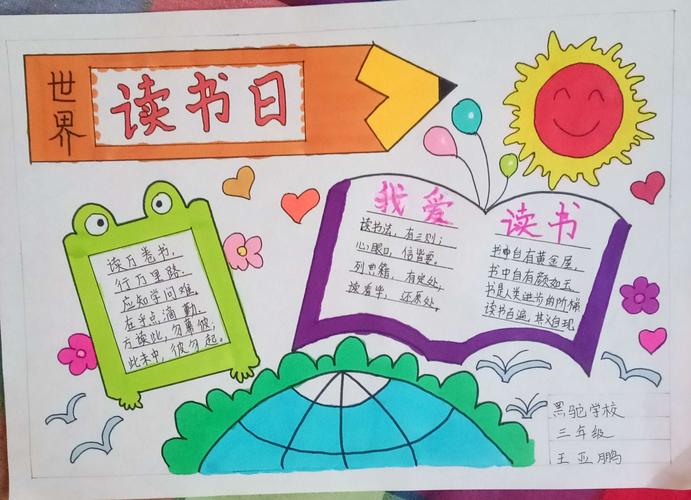 世界
读书日
我爱 读书
读万卷书,
行万里路.
应知学问难,
在乎点滴勤.
方读此,勿慕彼;
此未中,彼勿起.
读书法,有三则;
心眼口,信皆要.
列典籍,有定处,
读看毕,还原处.
书中自有黄金屋,
书中自有颜如玉
书是人类进步的阶梯
读书百遍,其义自现
黑驼学校
三年级
王亚鹏